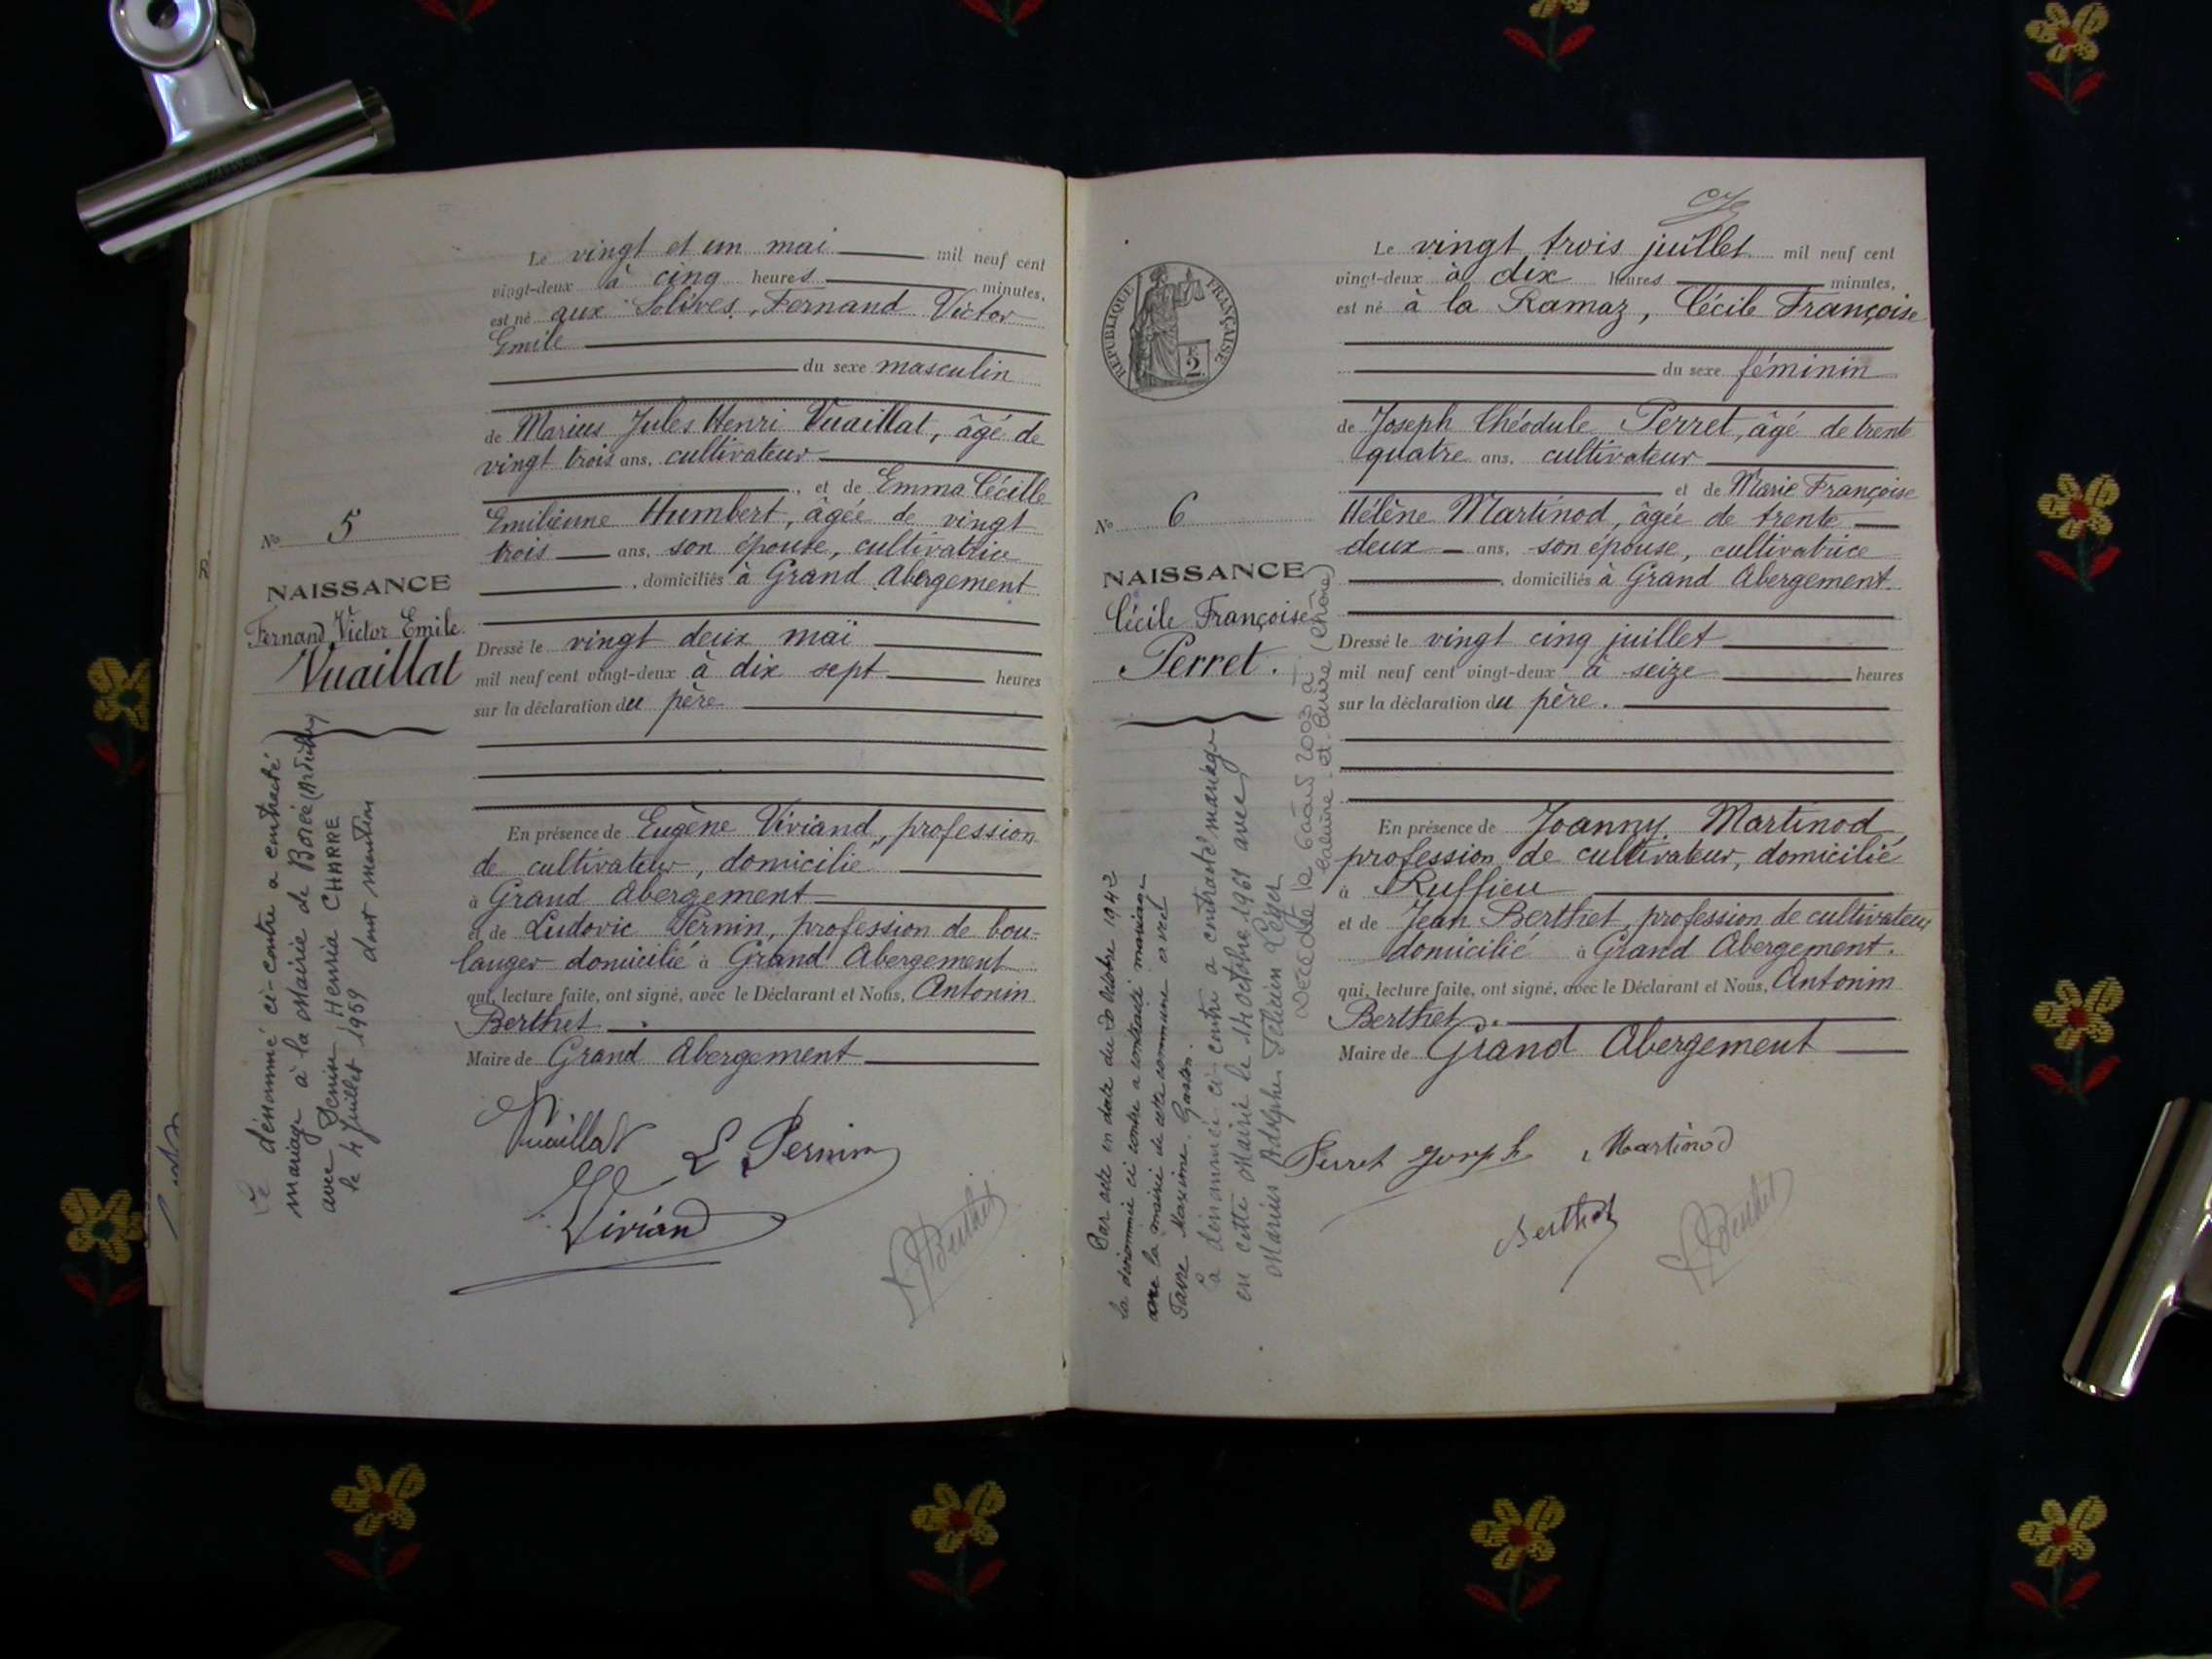 Le vingt et un mai mil neuf cent
vingt-deux à cinq heures minutes,
est né aux Solives, Fernand Victor
Emile
du sexe masculin
de Marius Jules Henri Vuaillat, âgé de
vingt trois ans, cultivateur
, et de Emma Cécille
Emilienne Humbert, âgée de vingt
trois ans, son épouse, cultivatrice
, domiciliés à Grand Abergement
Dressé le vingt deux mai
mil neuf cent vingt-deux à dix sept heures
sur la déclaration du père
En présence de Eugène Viviand, profession
de cultivateur, domicilié
à Grand Abergement
et de Ludovic Pernin, profession de bou-
langer domicilié à Grand Abergement
qui, lecture faite, ont signé, avec le Déclarant et Nous, Antonin
Berthet
Maire de Grand Abergement
Vuaillat L Pernin
Viviand
Berthet
No 5
NAISSANCE
Fernand Victor Emile
Vuaillat
Le dénommé ci-contre a contracté
mariage à la Mairie de Borée (Ardèche)
avec Denise Henria CHARRE
le 4 Juillet 1959 dont mention
REPUBLIQUE FRANÇAISE
F. 2
Le vingt trois juillet mil neuf cent
vingt-deux à dix heures minutes,
est né à la Ramaz, Cécile Françoise
du sexe féminin
de Joseph Théodule Perret, âgé de trente
quatre ans, cultivateur
et de Marie Françoise
Hélène Martinod, âgée de trente
deux ans, son épouse, cultivatrice
, domiciliés à Grand Abergement.
Dressé le vingt cinq juillet
mil neuf cent vingt-deux à seize heures
sur la déclaration du père.
En présence de Joanny Martinod
profession de cultivateur, domicilié
à Ruffieu
et de Jean Berthet, profession de cultivateur
domicilié à Grand Abergement.
qui, lecture faite, ont signé, avec le Déclarant et Nous, Antonin
Berthet.
Maire de Grand Abergement
Perret Joseph Martinod
Berthet
Berthet
No 6
NAISSANCE
Cécile Françoise
Perret.
Par acte en date du 20 Octobre 1942
la dénommée ci contre a contracté mariage
à la mairie de cette commune avec
Favre Maxime Gaston.
La dénommée ci-contre a contracté mariage
en cette Mairie le 14 octobre 1961 avec
Marius Adolphe Félicien Léger
Décédée le 6 août 2003 à
Caluire-et-Cuire (Rhône)